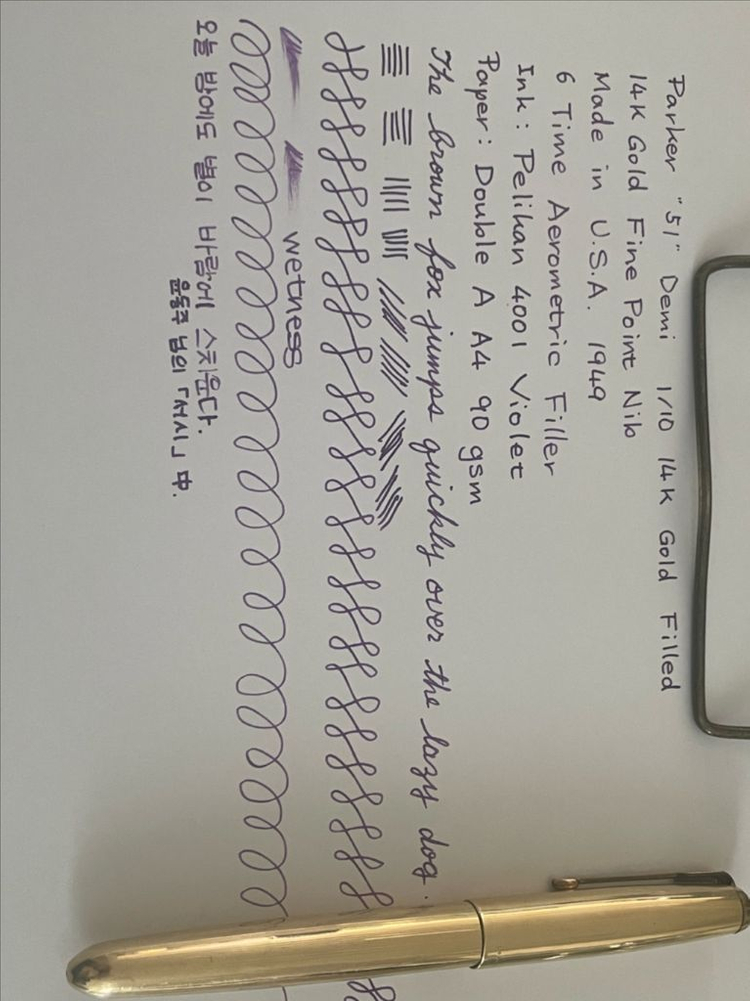 Parker "51" Demi 1/10 14K Gold Filled
14K Gold Fine Point Nib
Made in U.S.A. 1949
6 Time Aerometric Filler
Ink : Pelikan 4001 Violet
Paper : Double A A4 90 gsm
The brown fox jumps quickly over the lazy dog.
wetness
오늘 밤에도 별이 바람에 스치운다.
윤동주 님의 「서시」 中.